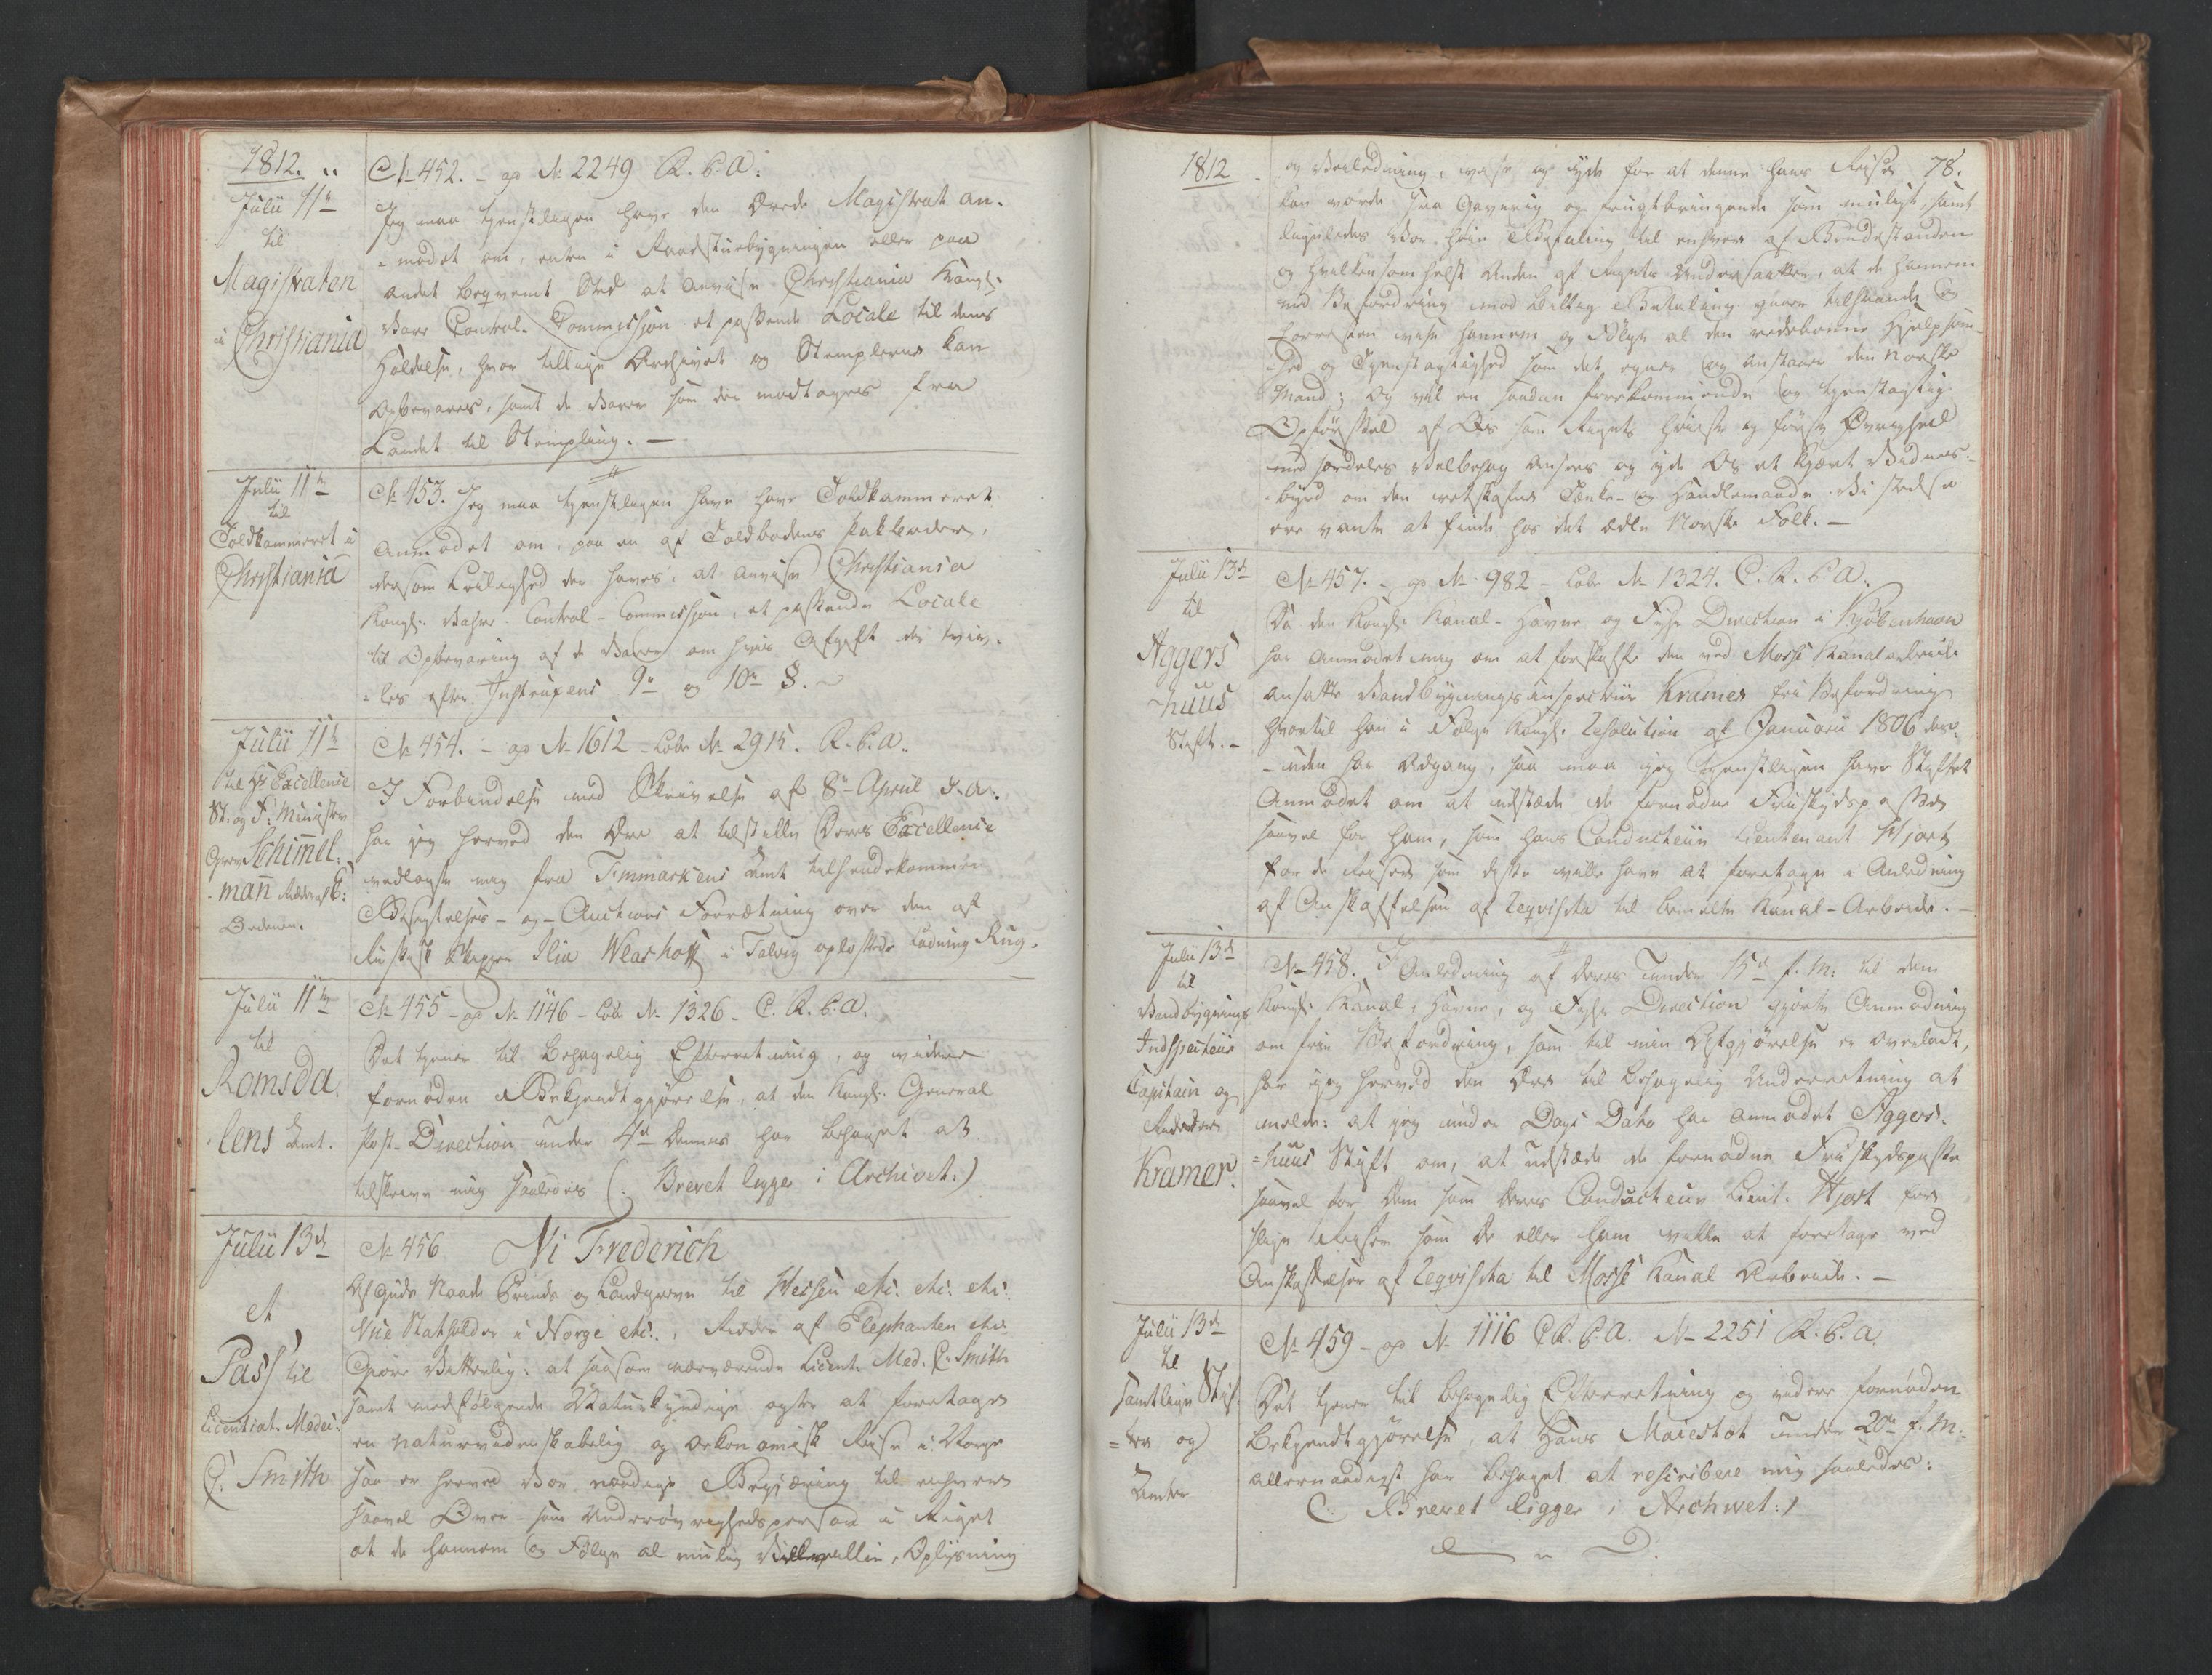 1812.
Julii 11te
til
Magistraten
i Christiania
No 452. - ad No 2249 R. b. A:
Jeg maa tjenstligen have den Ærede Magistrat an-
-modet om, enten i Raadstuebygningen eller paa
andet beqvemt Sted at anvise Christiania Kongl:
Vare Control-Commission et passende Locale til dens
Holdelse, hvor tillige Archivet og Stemplerne kan
Opbevares, samt de Varer som der modtages fra
Landet til Stempling. -
Julii 11te
til
Toldkammeret i
Christiania
No 453. Jeg maa tjenstligen have have Toldkammeret
Anmodet om, paa en af Toldbodens Pakboder,
dersom Leilighed der haves, at anvise Christiania
Kongl: Vahre-Control-Commission, et passende Locale
til Opbevaring af de Varer om hvis Afgift der tviv-
-les efter Instruxens 9de og 10de §. -
Julii 11te
til Hs Excellence
St: og F: Minister
Grev Schimmel-
-mann Ridder af E:
Ordenen.
No 454. - ad No 1612 - Løbe No 2915. R. b. A.
I Forbindelse med Skrivelse af 8de April d. A:
har jeg herved den Ære at tilstille Deres Excellence
vedlagte mig fra Finmarkens Amt tilhændekommen
Besigtelses- og - Auctions Forretning over den af
Russisk Skipper Ilia Wearhoff i Talvig oplossede Ladning Rug.
Julii 11te
til
Romsda-
-lens Amt.
No 455 - ad No 1146 - Løbe No 1326 - C. R. b. A.
Det tjener til behagelig Efterretning, og videre
fornøden Bekjendtgjørelse, at den Kongl: General
Post-Direction under 4de dennes har behaget at
tilskrive mig saaledes (: Brevet ligger i Archivet:)
Julii 13de
et
Pass til
Licentiat Medici:
C: Smith
No 456 Vi Friderich
Af Guds Naade Prinds og Landgreve til Hessen etc: etc: etc:
Vice Statholder i Norge etc:, Ridder af Elephanten etc:
Gjøre Vitterlig: at saasom nærværende Licent: Med. C: Smith
samt medfølgende Naturkyndige agter at foretage
en naturvidenskabelig og oekonomisk Reise i Norge
saa er herved Vor naadige Begjæring til enhver
saavel Over- som Underøvrighedsperson i Riget
at de hannem og Følge al mulig Velvillie, Oplysning
1812
78.
og Veiledning, vise og yde for at denne hans Reise
kan vorde saa Gavnrig og frugtbringende som muligt, samt
ligeledes Vor høie Befaling til enhver af Bondestanden
og hvilkensomhelst Anden af Rigets Undersaatter, at de hannem
med Befordring imod billig Betaling gaaer tilhaande og
forresten vise hannem og Følge al den redebonne Hjelpsom-
-hed og Tjenstagtighed som det egner og anstaaer den Norske
Mand; Og vil en saadan forekommende og tjenstagtig
Opførsel af Os som Rigets høieste og første Øvrighed
med særdeles Velbehag ansees og yde Os et kjært Vidnes-
-byrd om den retskafne Tænke- og Handlemaade Vi stedse
ere vante at finde hos det ædle Norske Folk. -
Julii 13de
til
Aggers-
-huus
Stift. -
No 457. - ad No 982 - Løbe No 1324. C. R. b. A.
Da den Kongl: Kanal- Havne og Fyhr Direction i Kjøbenhavn
har anmodet mig om at forskaffe den ved Mosse Kanalarbeide
ansatte Vandbygningsinspecteur Kramer fri Befordring
hvortil han i Følge Kongl: Resolution af Januarii 1806 des-
-uden har Adgang, saa maa jeg tjenstligen have Stiftet
Anmodet om at udstæde de fornødne Friskydspasser
saavel for ham, som hans Conducteur Lieutenant Hjort
for de Reiser som disse ville have at foretage i Anledning
af Anskaffelsen af Reqvisita til bemelte Kanal-Arbeide. -
Julii 13de
til
Vandbygnings
Indspecteur
Capitain og
Kramer.
No 458. I Anledning af Deres under 15de f. M: til den
Kongl: Kanal, Havne, og Fyhr Direction gjorte Anmodning
om frie Befordring, som til min Afgjørelse er overladt,
har jeg herved den Ære til behagelig Underretning at
melde: at jeg under Dags Dato har anmodet Aggers-
-huus Stift om, at udstæde de fornødne Friskydspasse
saavel for Dem som Deres Conducteur Lieut. Hjort for
slige Reiser som De eller ham vilde at foretage ved
Anskaffelser af Reqvisita til Mosse Kanal Arbeide. -
Julii 13de
til
samtlige Stif-
-ter og
Amter
No 459 - ad No 1116 C. R. b. A. No 2251 R. b. A.
Det tjener til behagelig Efterretning og videre fornøden
Bekjendtgjørelse, at Hans Majestæt under 20de f. M:
allernaadigst har behaget at rescribere mig saaledes:
(: Brevet ligger i Archivet:)